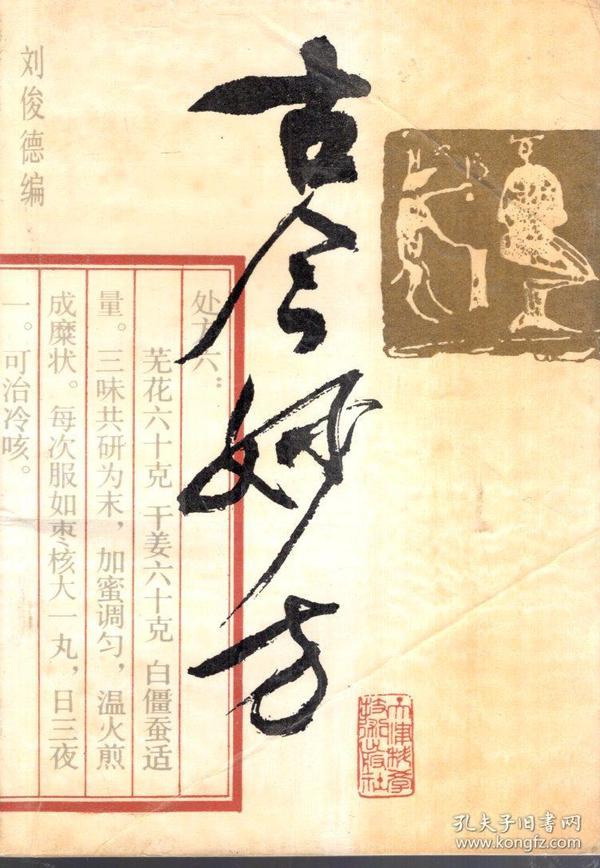 古今妙方
刘俊德编
处方六：
芜花六十克 干姜六十克 白僵蚕适
量。三味共研为末，加蜜调匀，温火煎
成糜状。每次服如枣核大一丸，日三夜
一。可治冷咳。
天津科学
技术出版社
孔夫子旧书网
www.kongfz.com